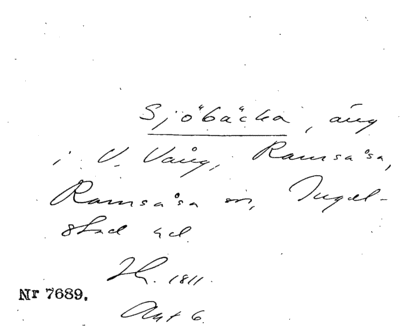 Sjöbäcka, äng
i V. Vång, Ramsåsa,
Ramsåsa sn, Ingel-
stad hd.
1811.
Akt 6.
Nr 7689.